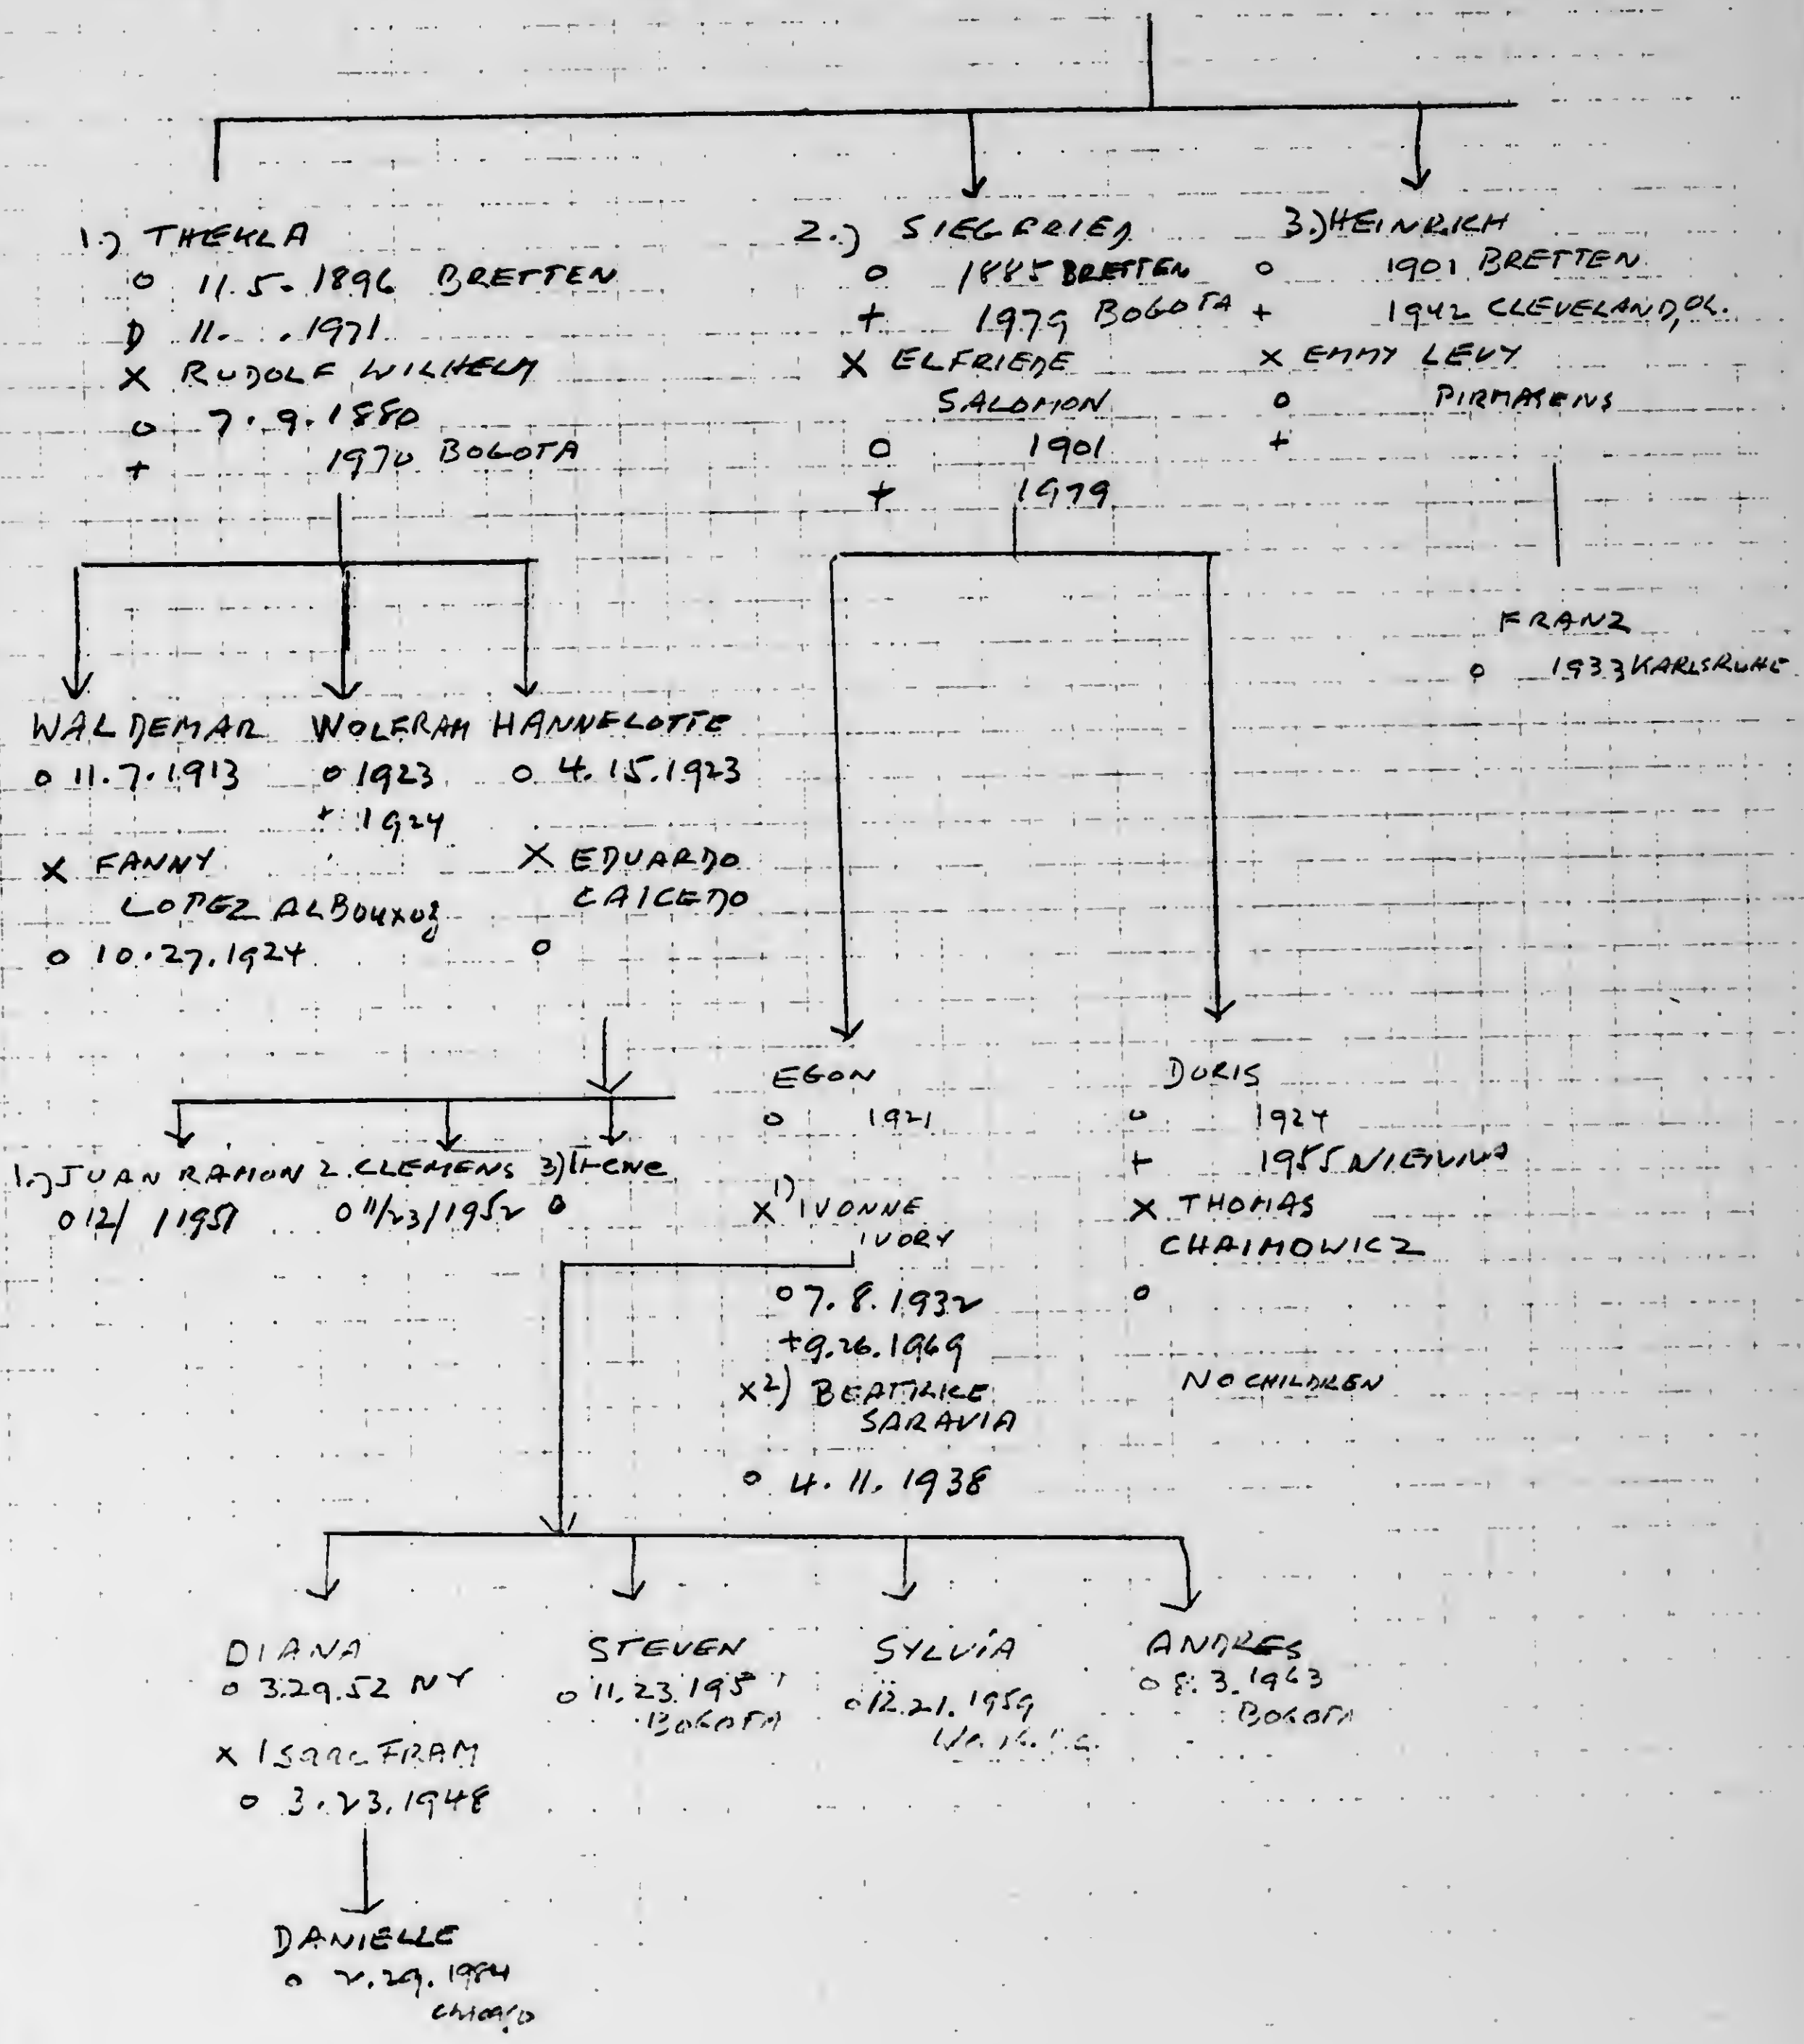 1.) THEKLA
o 11.5.1896 BRETTEN
D 11. .1971
X RUDOLF WILHELM
o 7.9.1880
+ 1970 BOGOTA
2.) SIEGFRIED
o 1885 BRETTEN
+ 1979 BOGOTA
X ELFRIEDE
SALOMON
o 1901
+ 1979
3.) HEINRICH
o 1901 BRETTEN
+ 1942 CLEVELAND, OH.
X EMMY LEVY
o PIRMASENS
+
FRANZ
o 1933 KARLSRUHE
WALDEMAR
o 11.7.1913
X FANNY
LOPEZ
o 10.27.1924
WOLFRAM
o 1923
+ 1924
HANNELOTTE
o 4.15.1923
X EDUARDO
CAICEDO
o
1.) JUAN RAMON
o 12/ /1951
2. CLEMENS
o 11/23/1952
3) Irene
o
EGON
o 1921
X 1) IVONNE
IVORY
o 7.8.1932
+ 9.26.1969
X 2) BEATRICE
SARAVIA
o 4.11.1938
DORIS
o 1924
+ 1955
X THOMAS
CHAIMOWICZ
o
NO CHILDREN
DIANA
o 3.29.52 NY
X ISAAC FRAM
o 3.23.1948
STEVEN
o 11.23.195
BOGOTA
SYLVIA
o 12.21.1959
ANDRES
o 8.3.1963
BOGOTA
DANIELLE
o 2.29.1984
Chicago